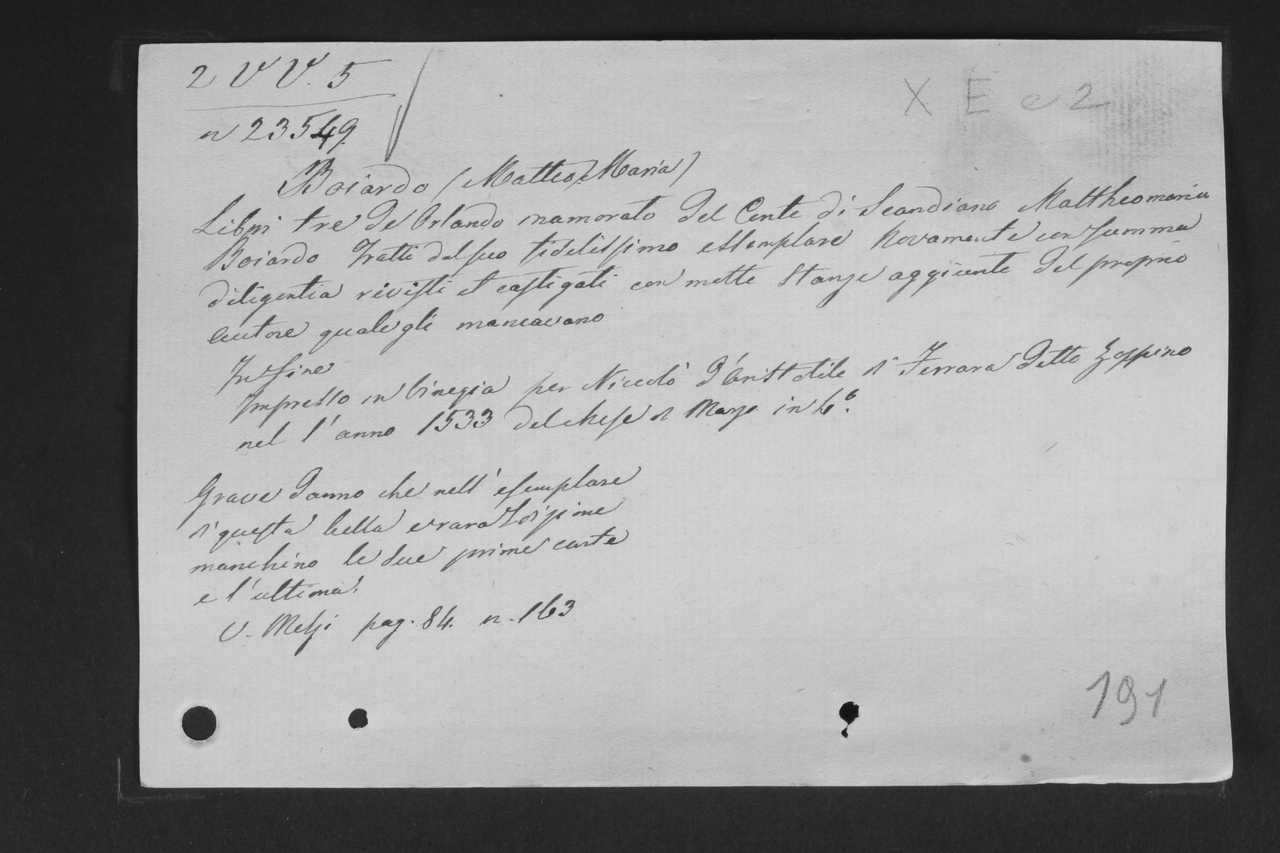 2 V V. 5
X E c 2
n 23549
Boiardo (Matteo Maria)
Libri tre de Orlando inamorato del Conte di Scandiano Mattheomaria
Boiardo Tratti dal suo fidelissimo essemplare Novamente con summa
diligentia rivisti et castigati con molte stanze aggiunte del proprio
autore quale gli mancavano
In fine
Impresso in Vinegia per Niccolò d'Aristotile di Ferrara detto Zoppino
nel l'anno 1533 del Mese di Marzo in 6°.
Grave danno che nell'esemplare
di questa bella e rara edizione
manchino le due prime carte
e l'ultima!
V. Melzi pag. 84. n. 163
191